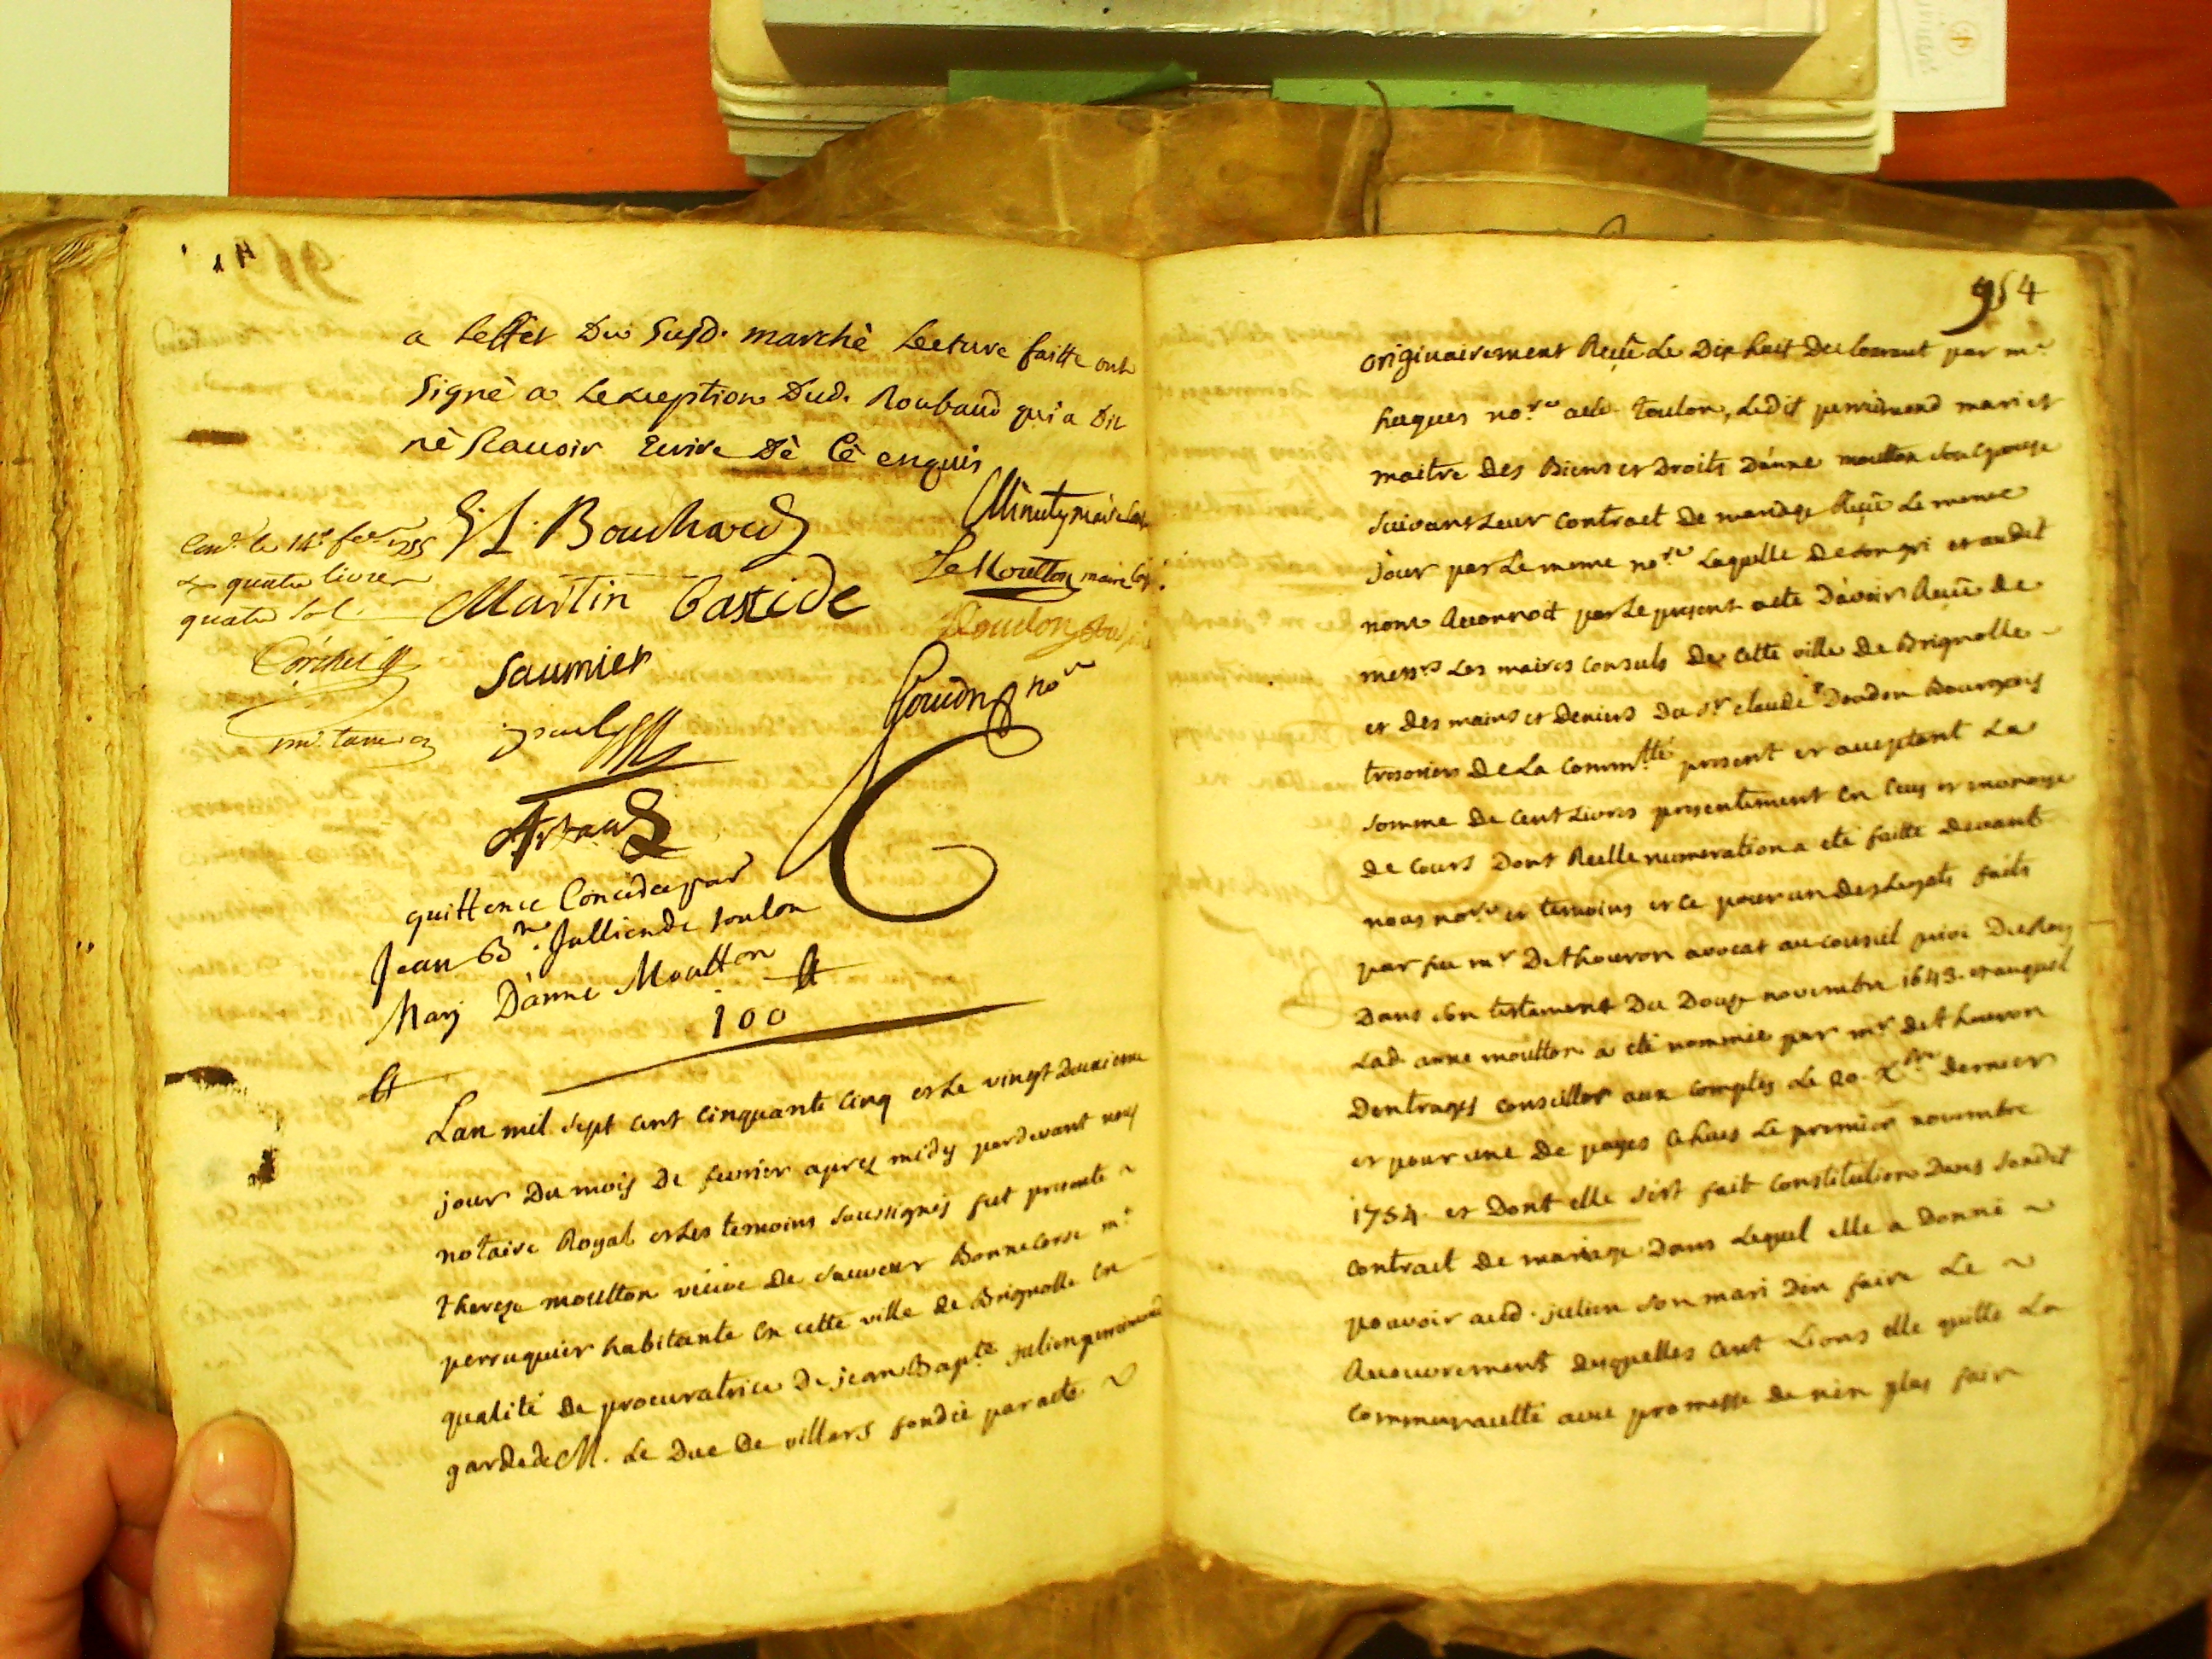 a Leffet Du Susd. marché Lecture faitte ont
Signé a Lexception Dud. Roubaud qui a Dit
né Scavoir Ecrire Dé Cé enquis
Minuty maire Con
Bouchard
Con.le le 14e fev.er 1755
quatre livres
quatre sol.
LeMoutton maire
Martin Bastide
Saumier
paul
Goujon no.re
Artaud
quittence Concédée par
Jean Btte Jullien de toulon
Mary D'anne Moutton
100
Lan mil sept cent cinquante cinq et Le vingt deuxieme
jour Du mois De fevrier apres midy pardevant nous
notaire Royal et Les temoins soussignés fut presente
therese moutton veuve de sauveur Bonnecorse me
perruquier habitante en cette ville de Brignolle en
qualité de procuratrice De jean Bapte. julien perrimond
garde de M. Le Duc De villars fondée par acte
954
originairement Reçu Le Dix huit du Courant par me
hugues no.re aud. toulon, Ledit perrimond mari et
maitre des Biens et Droits D'anne moutton son epouse
suivant Leur contract de mariage Reçu Le meme
jour par Le meme no.re Laquelle de son gré et audit
nom a avouvoit par Le present acte D'avoir Reçu de
messrs Les maires consuls de cette ville de Brignolle
et des mains et deniers du Sr claude Doudon Bourgeois
tresorier de La Commtté present et acceptant La
somme de cent Livres presentement en ecus et monoye
de cours Dont Reelle numeration a eté faitte devant
nous no.re et temoins et ce pour un des Legats faits
par feu mr Dethouron avocat au conseil privé Du Roy
Dans son testament Du Douze novembre 1643. et auquel
Lad. anne moutton a eté nommée par mr dethouron
Dentrages conseiller aux comptes Le 20. Xbre dernier
et pour une de payes echues Le premier novembre
1754. et Dont elle s'est fait constitution Dans sondit
contract de mariage Dans Lequel elle a Donné
pouvoir aud. julien son mari D'en faire Le
Recouvrement desquelles cent Livres elle quitte La
communaulté avec promesse de n'en plus faire